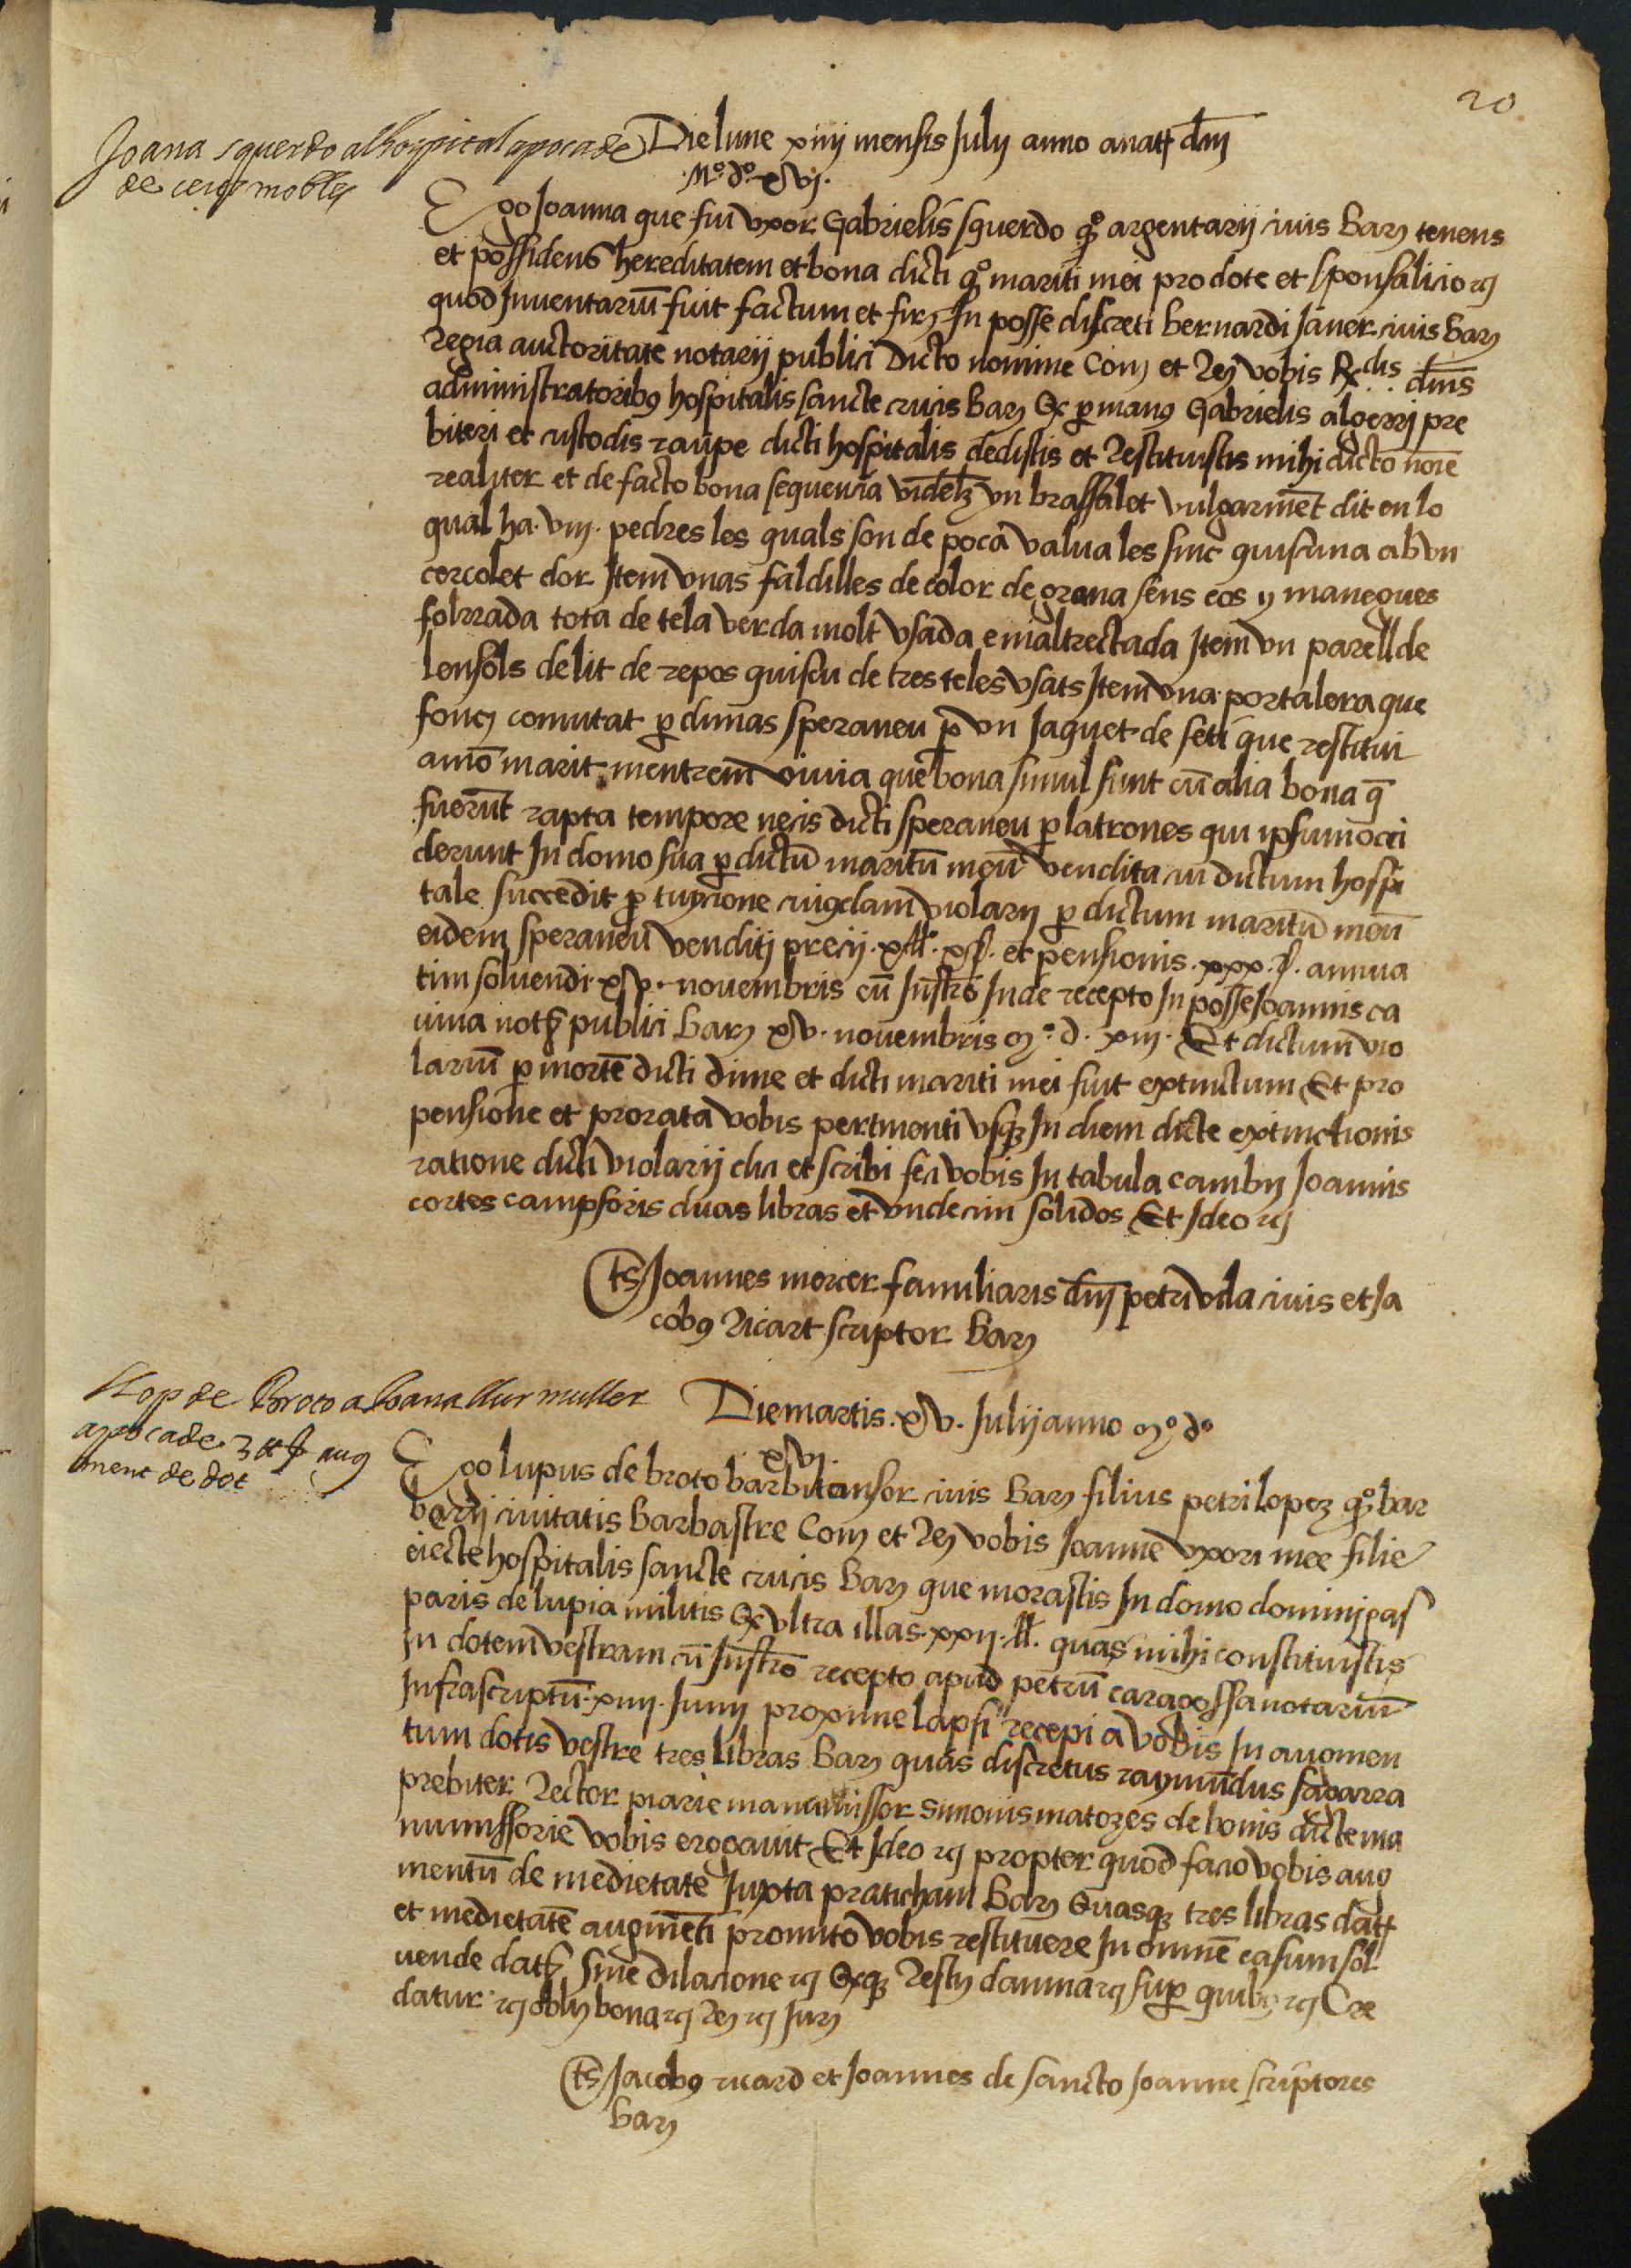 20
Joana squerdo al hospital apoca de
de certs mobles
Die lune xiiij mensis Julij anno a natt dnj
Mº dº xvj.
Ego Joanna que fui uxor Gabrielis squerdo qº argentarij civis barn tenens
et possidens hereditatem et bona dicti qº mariti mei pro dote et sponsalicio rcj
quod Inventariu fuit factum et firm In posse discreti bernardi Janer civis barn
Regia auctoritate notarij publici Dicto nomine Conf et Rec vobis Rdis dnis
administratoribus hospitalis sancte crucis barn Qr p manus Gabrielis algerri pre
biteri et custodis raupe dicti hospitalis dedistis et Restituistis mihi dicto noie
realiter et de facto bona sequencia videlz un brassalet vulgarmet dit en lo
qual ha viij. pedres les quals son de poca valua les sinc quiscuna ab un
cercolet dor Item unas faldilles de color de grana sens cos y manegues
folrrada tota de tela verda molt usada e maltrectada Item un parell de
lensols de lit de repos quiscu de tres teles usats Item una portalera que
fonch comutat p dimas speraneu p un Jaquet de seti que restitui
a mo marit mentrem vivia que bona simul sunt cu alia bona q
fuerunt rapta tempore necis dicti speraneu p latrones qui ipsum occi
derunt In domo sua p dictu maritu meu vendita cui dictum hospi
tale succedit p tuycione cuiusdam violarij p dictum maritu meu
eidem speraneu venditj precij xxj ll. x s. et pensionis xxx s. annua
tim solvendi xv novembris cu Instro Inde recepto In posse Joannis ca
vina noth publici barn xv. novembris Mº d. xiij. Et dictum vio
lariu p morte dicti dime et dicti mariti mei fuit extinctum Et pro
pensione et prorata vobis pertinenti usqz In diem dicte extinctionis
ratione dicti violarij dici et scribi feci vobis In tabula cambij Joannis
cortes campsoris duas libras et undecim solidos Et Ideo rcj
ts Joannes mercer familiaris dnj petri vila civis et Ja
cobus Ricart scriptor barn
Llop de Broto a Joana llur muller
apoca de 3 ll p aug
ment de dot
Die martis. xv. Julij anno Mº dº
xvj.
Ego lupus de broto barbitonsor civis barn filius petri lopez qº bar
berij civitatis barbastre Conf et Rec vobis Joanne uxori mee filie
eiecte hospitalis sancte crucis barn que morastis In domo dominj gas
paris de lupia militis Qr ultra illas xxij ll. quas mihi constituistis
In dotem vestram cu Instro recepto apud petru caragossa notariu
Infrascriptu xiiij Junij proxime lapsi recepi a vobis In augmen
tum dotis vestre tres libras barn quas discretus raymundus sagarra
prebiter Rector piarie manumissor simonis matozes de bonis dicte ma
numissorie vobis erogavit Et Ideo rcj propter quod facio vobis aug
mentu de medietate Juxta praticham barn Quasqz tres libras datt
et medietate augmeti promito vobis restituere In omne casum sol
vende dath sine dilacione rcj Exqz Resty damna rcj sup quibus rcj Cre
datur rcj oblig bona rcj Ren rcj Jur
ts Jacobus ricard et Joannes de sancto Joanne scriptores
barn